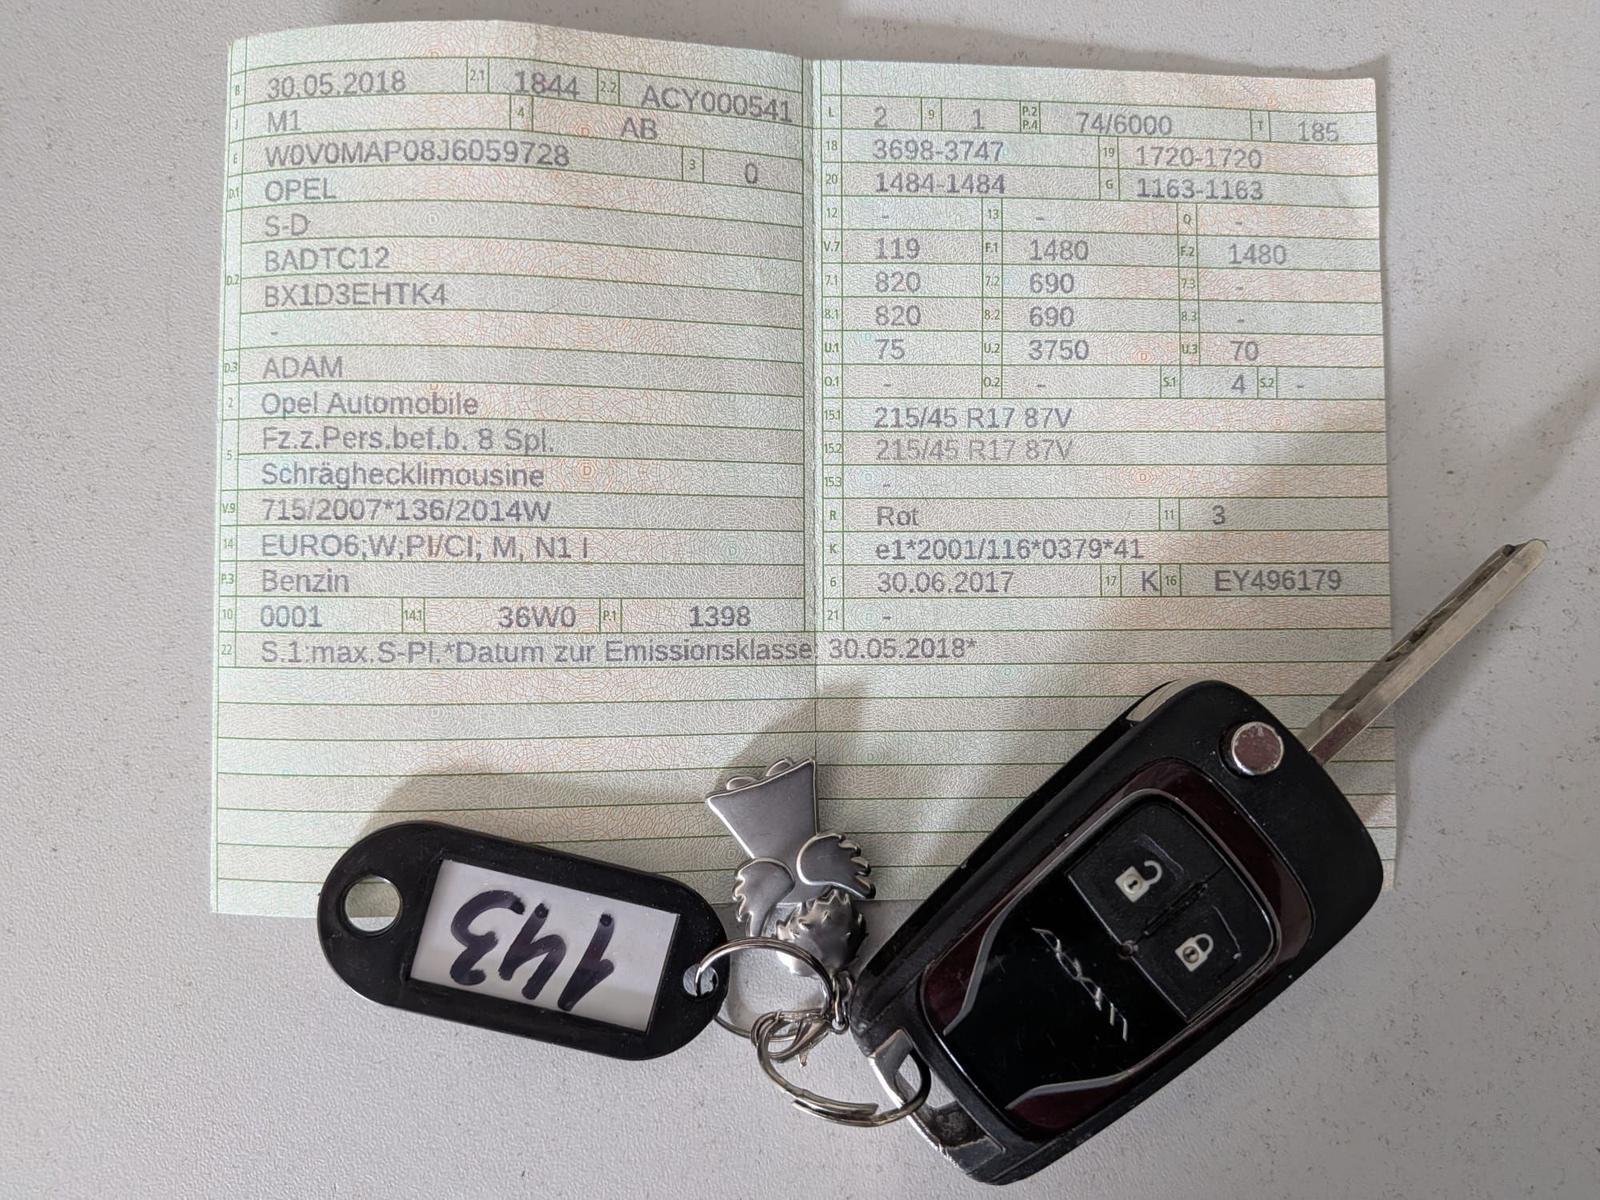 B 30.05.2018 2.1 1844 2.2 ACY000541
J M1 4 AB
E W0V0MAP08J6059728 3 0
D.1 OPEL
S-D
D.2 BADTC12
BX1D3EHTK4
-
D.3 ADAM
2 Opel Automobile
5 Fz.z.Pers.bef.b. 8 Spl.
Schräghecklimousine
V.9 715/2007*136/2014W
14 EURO6;W;PI/CI; M, N1 I
P.3 Benzin
10 0001 14.1 36W0 P.1 1398
22 S.1:max.S-Pl.*Datum zur Emissionsklasse: 30.05.2018*
L 2 9 1 P.2 P.4 74/6000 T 185
18 3698-3747 19 1720-1720
20 1484-1484 G 1163-1163
12 - 13 - Q -
V.7 119 F.1 1480 F.2 1480
7.1 820 7.2 690 7.3 -
8.1 820 8.2 690 8.3 -
U.1 75 U.2 3750 U.3 70
O.1 - O.2 - S.1 4 S.2 -
15.1 215/45 R17 87V
15.2 215/45 R17 87V
15.3 -
R Rot 11 3
K e1*2001/116*0379*41
6 30.06.2017 17 K 16 EY496179
21 -
143